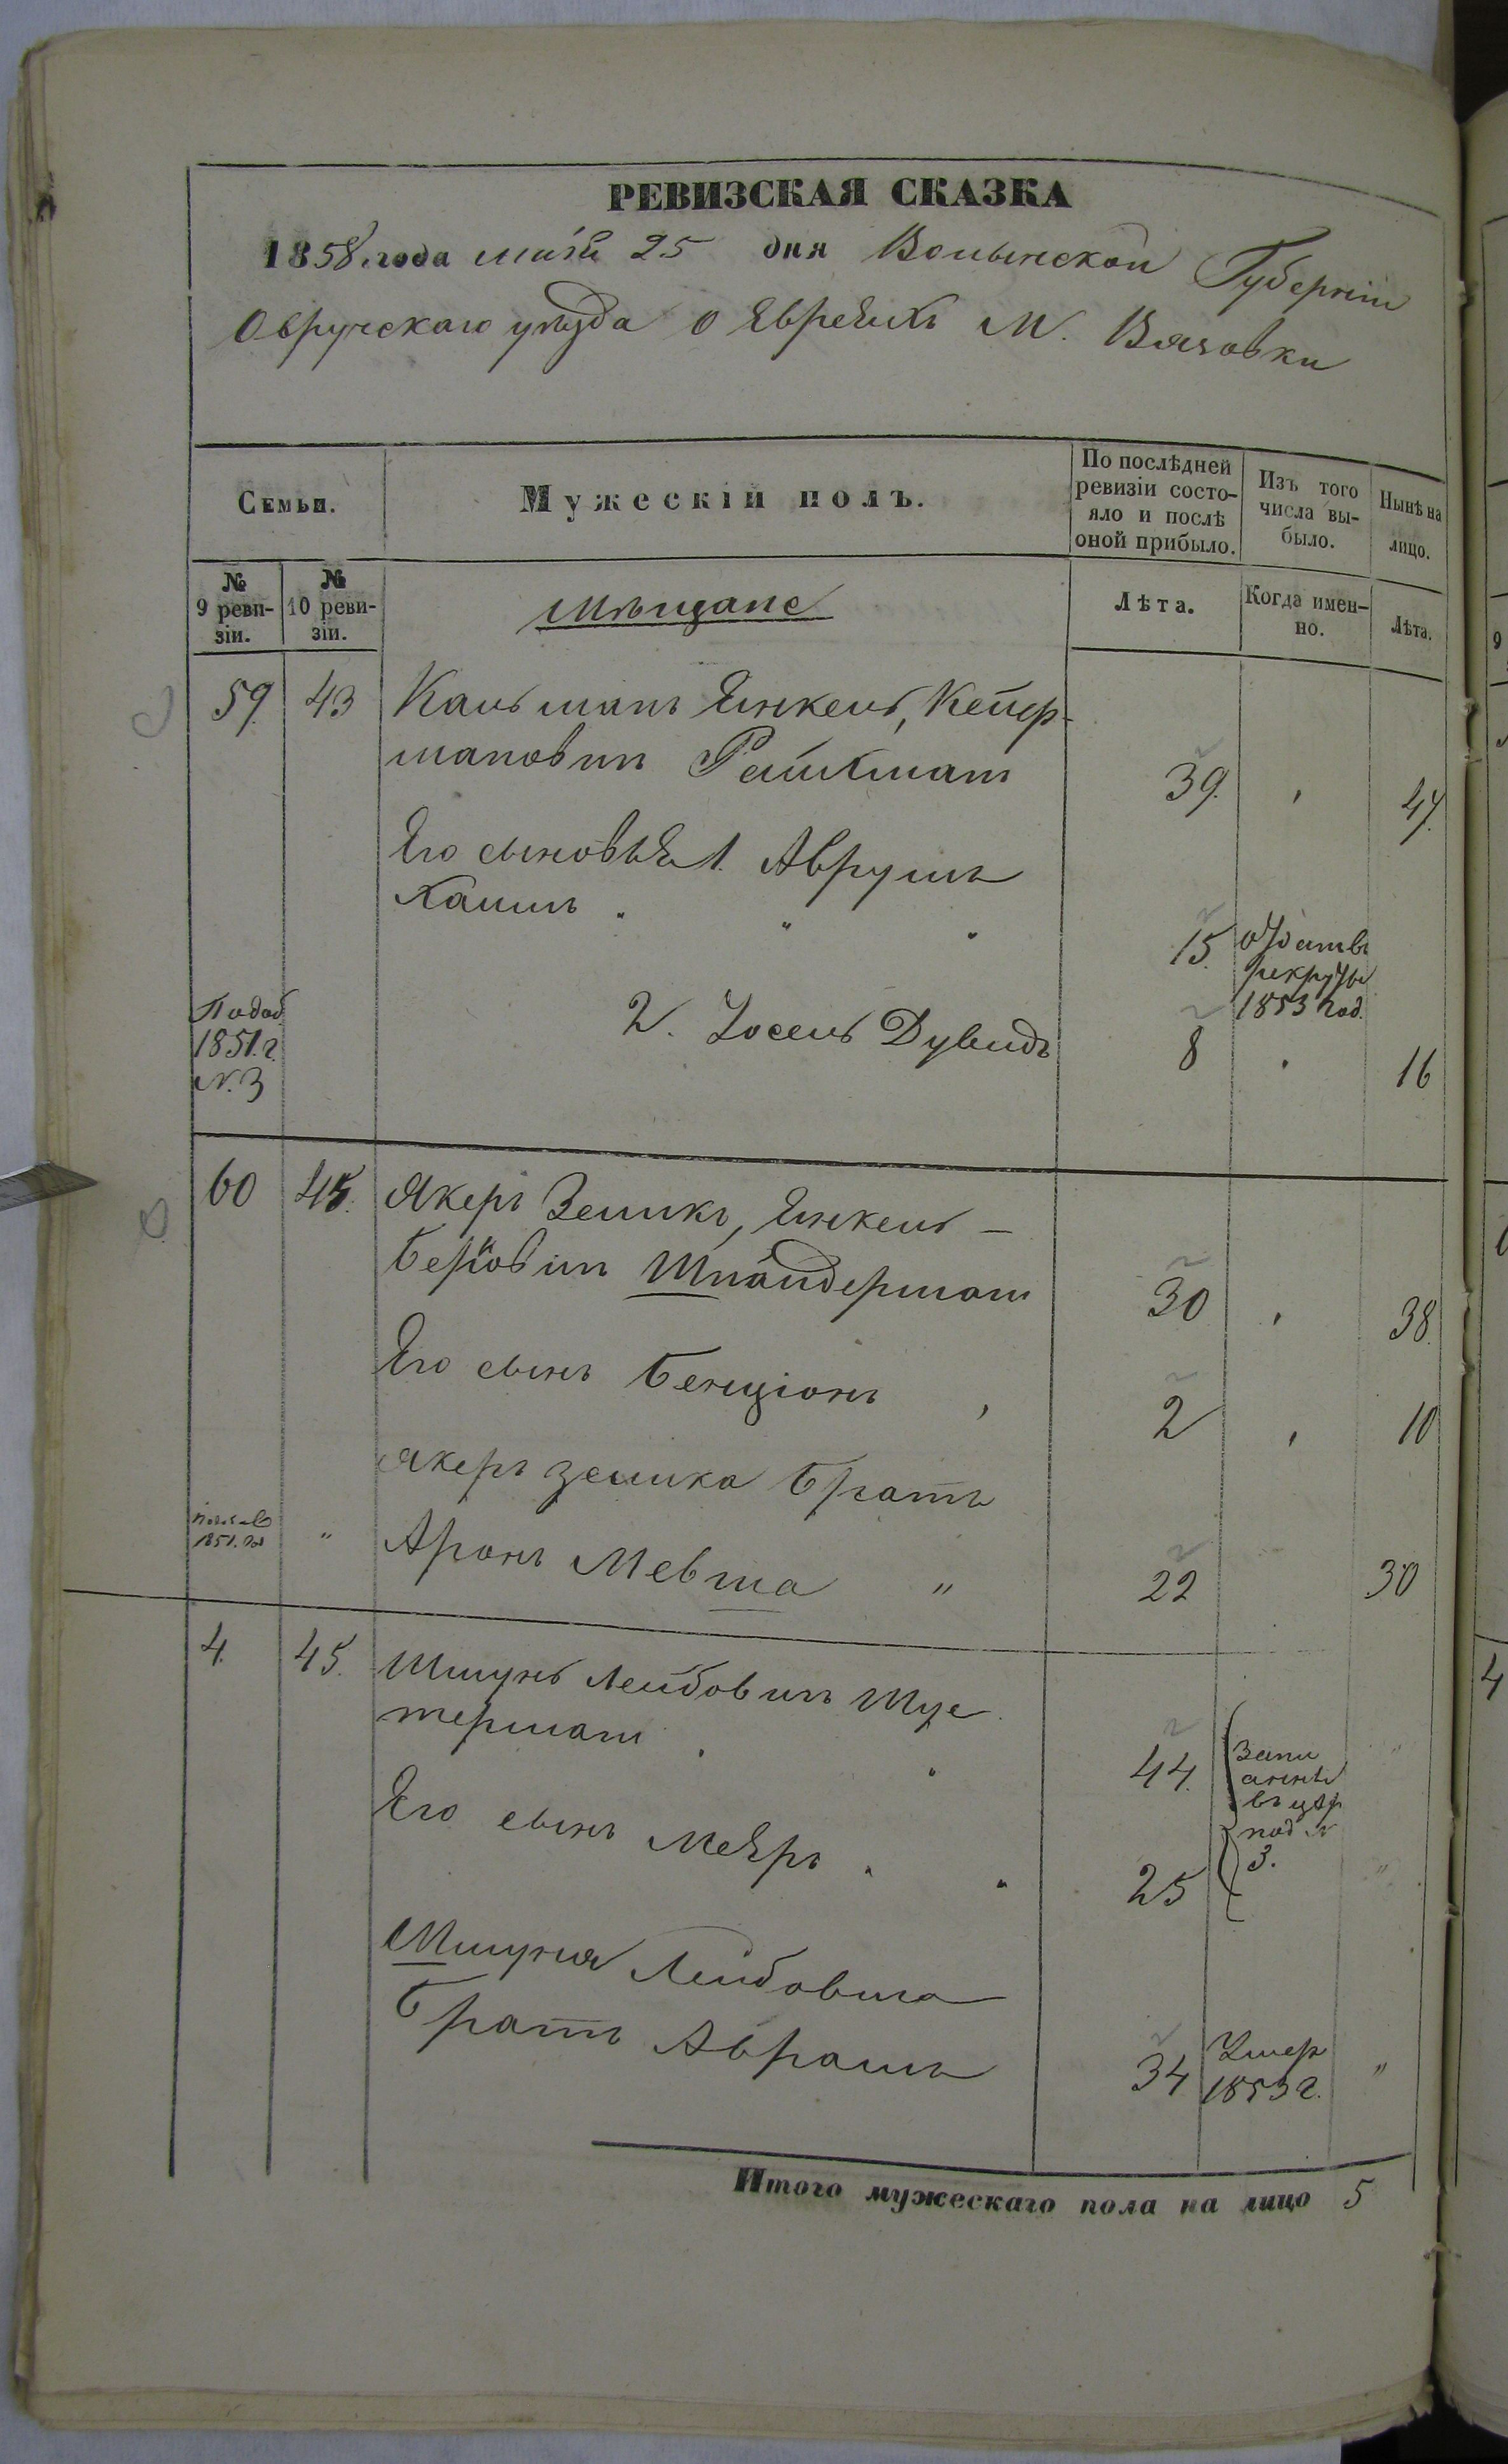 РЕВИЗСКАЯ СКАЗКА
1858 года маія 25 дня Волынской Губерніи
Овручскаго уѣзда о Евреяхъ М.
Семьи.
Мужескій полъ.
По послѣдней ревизіи состо-
яло и послѣ оной прибыло.
Изъ того числа вы-
было.
Нынѣ на лицо.
№ 9 реви-
зіи.
№ 10 реви-
зіи.
Мѣщане
Лѣта.
Когда имен-
но.
Лѣта.
59. 43 Кальманъ Янкель,
мановичъ 39. 47.
Его сыновья 1. Аврумъ
Хаимъ 15. отдатъ
рекруты
1853 год.
2. Іосель Дувидъ 8 16
1851 г.
N. 3
60 45. Якеръ Зеликъ, Янкель-
Берковичъ Шпандерманъ 30 38.
Его сынъ Бенціонъ 2 10
Якеръ Зелика братъ
1851. Аронъ 22 30
4. 45. Шмунь Лейбовичъ Шус
терманъ 44.
въ
под N
3.
Его сынъ Меяръ 25
Шмуня Лейбовича
братъ Абрамъ 34 Умер
1853 г.
Итого мужескаго пола на лицо 5